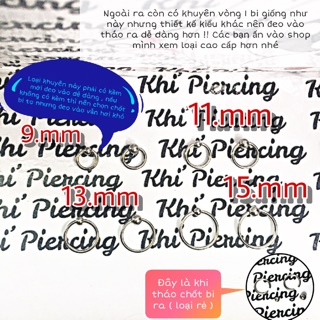 Ngoài ra còn có khuyên vòng 1 bi giống như
này nhưng thiết kế kiểu khác nên đeo vào
tháo ra dễ dàng hơn !! Các bạn ấn vào shop
mình xem loại cao cấp hơn nhé
Loại khuyên này phải có kềm
mới đeo vào dễ dàng , nếu
không có kềm thì nên chọn chốt
bi to nhưng đeo vào vẫn hơi khó
9.mm
11.mm
Khí Piercing
Khí Piercing
13.mm
15.mm
Khí Piercing
Khí Piercing
Khí Piercing
Đây là khi
tháo chốt bi
ra ( loại rẻ )